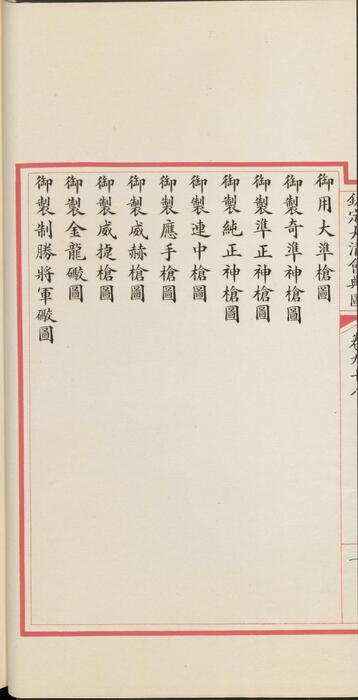 欽定大清會典圖
卷九十八
一
御用大準槍圖
御製奇準神槍圖
御製準正神槍圖
御製純正神槍圖
御製連中槍圖
御製應手槍圖
御製威赫槍圖
御製威捷槍圖
御製金龍礮圖
御製制勝將軍礮圖